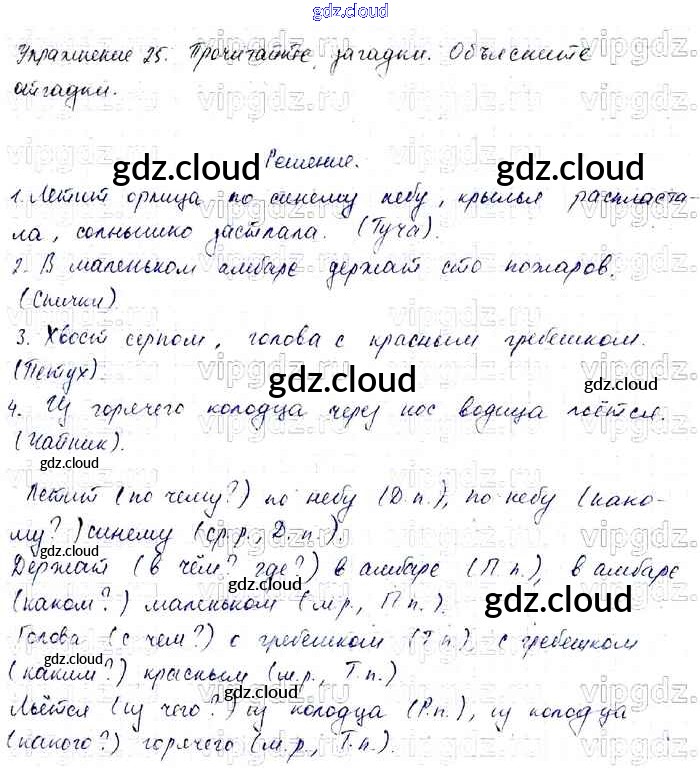 gdz.cloud
Упражнение 25. Прочитайте загадки. Объясните
отгадки.
Решение.
gdz.cloud gdz.cloud
1. Летит орлица по синему небу, крылья распласта-
ла, солнышко застлала. (Туча).
2. В маленьком амбаре держат сто пожаров.
(Спички)
3. Хвост серпом, голова с красным гребешком.
(Петух).
gdz.cloud
4. Из горячего колодца через нос водица льётся.
(Чайник).
gdz.cloud
Летит (по чему?) по небу (Д.п.), по небу (како-
му?) синему (ср.р., Д.п.).
Держат (в чём? где?) в амбаре (П.п.), в амбаре
(каком?) маленьком (м.р., П.п.).
gdz.cloud gdz.cloud
Голова (с чем?) с гребешком (Т.п.), с гребешком
(каким?) красным (м.р., Т.п.)
gdz.cloud
Льётся (из чего?) из колодца (Р.п.), из колодца
(какого?) горячего (м.р., Т.п.).
gdz.cloud
vipgdz.ru